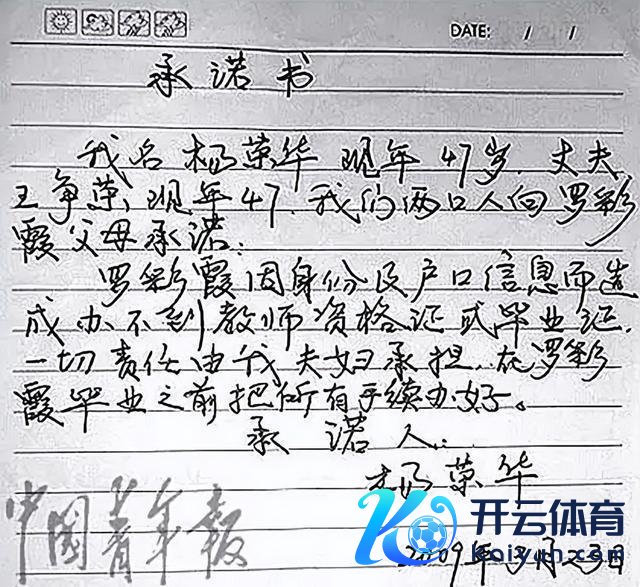 DATE: / /
承诺书
我名杨荣华 现年47岁. 丈夫
王争荣, 现年47. 我们两口人向罗彩
霞父母承诺:
罗彩霞因身份及户口信息而造
成办不到教师资格证或毕业证.
一切责任由我夫妇承担. 在罗彩
霞毕业之前把所有手续办好。
承诺人:
杨荣华
2009年3月23日
中国青年报
开云体育
kaiyun.com